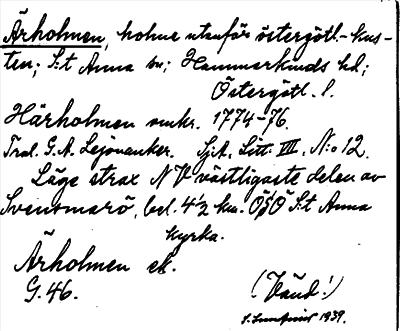 Ärholmen, holme utanför östergötl.-kus-
ten; S:t Anna sn; Hammarkinds hd;
Östergötl. l.
Härholmen omkr. 1774-76.
G. A. Lejonanker. Sjk. Litt. VIII, N:o 12.
Läge strax NV västligaste delen av
Svensmarö, bel. 4½ km. ÖSÖ S:t Anna
kyrka.
Ärholmen ek.
G. 46.
(Vänd!)
1939.